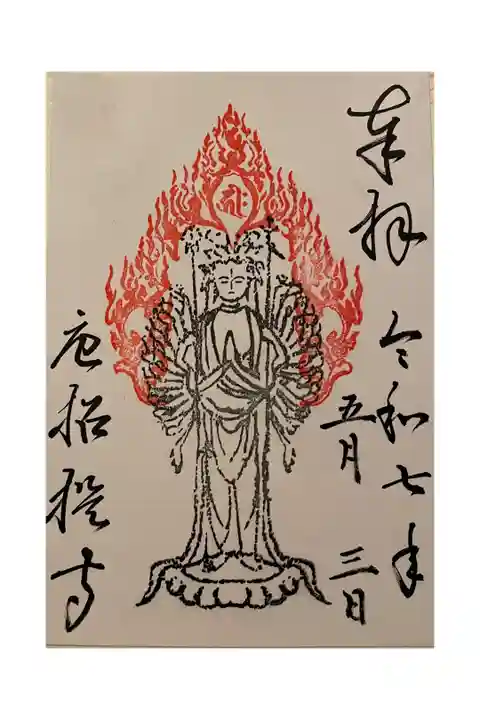 奉拝
令和七年
五月
三日
唐招提寺